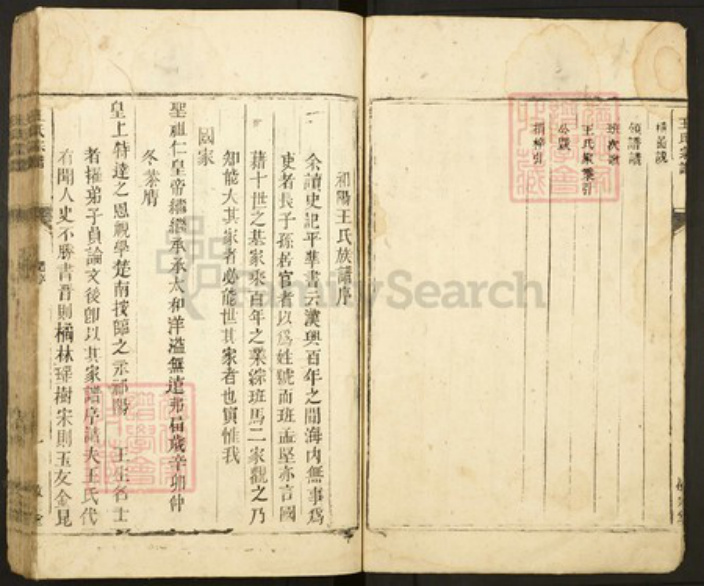 領譜議
班次歌
王氏家乘引
公啟
捐梓引
祁陽王氏族譜序
余讀史記平準書云漢興百年之間海內無事為
吏者長子孫居官者以為姓號而班孟堅亦言國
藉十世之基家承百年之業綜班馬二家觀之乃
知能大其家者必能世其家者也寅惟我
國家
聖祖仁皇帝繼繼承承太和洋溢無遠弗屆歲辛卯仲
冬恭膺
皇上特達之恩視學楚南按臨之永祁陽 王生名士
者攉弟子員論文後卽以其家譜序請夫王氏代
有聞人史不勝書晉則橘林瑤樹宋則玉友金昆
王氏宗譜
FamilySearch